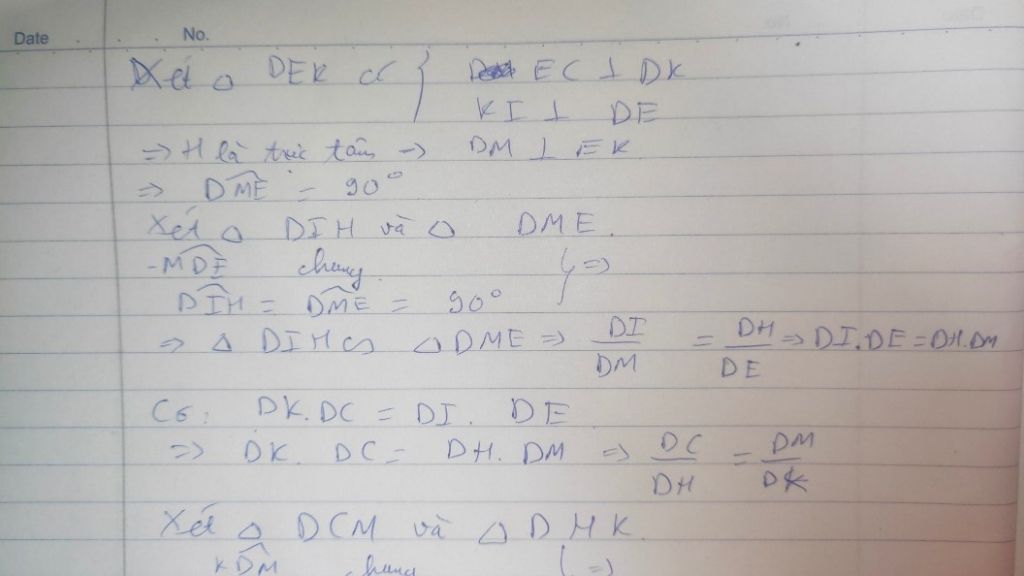 Date No.
Xét △ DEK có { EC ⊥ DK
KI ⊥ DE
=> H là trực tâm → DM ⊥ EK
=> $\widehat{DME}$ = 90°
Xét △ DIH và △ DME.
- $\widehat{MDE}$ chung } =>
$\widehat{DIH}$ = $\widehat{DME}$ = 90°
=> △ DIH ∽ △ DME => $\frac{DI}{DM}$ = $\frac{DH}{DE}$ => DI.DE = DH.DM
Có: DK.DC = DI. DE
=> DK. DC = DH. DM => $\frac{DC}{DH}$ = $\frac{DM}{DK}$
Xét △ DCM và △ DHK.
$\widehat{KDM}$ chung } =>